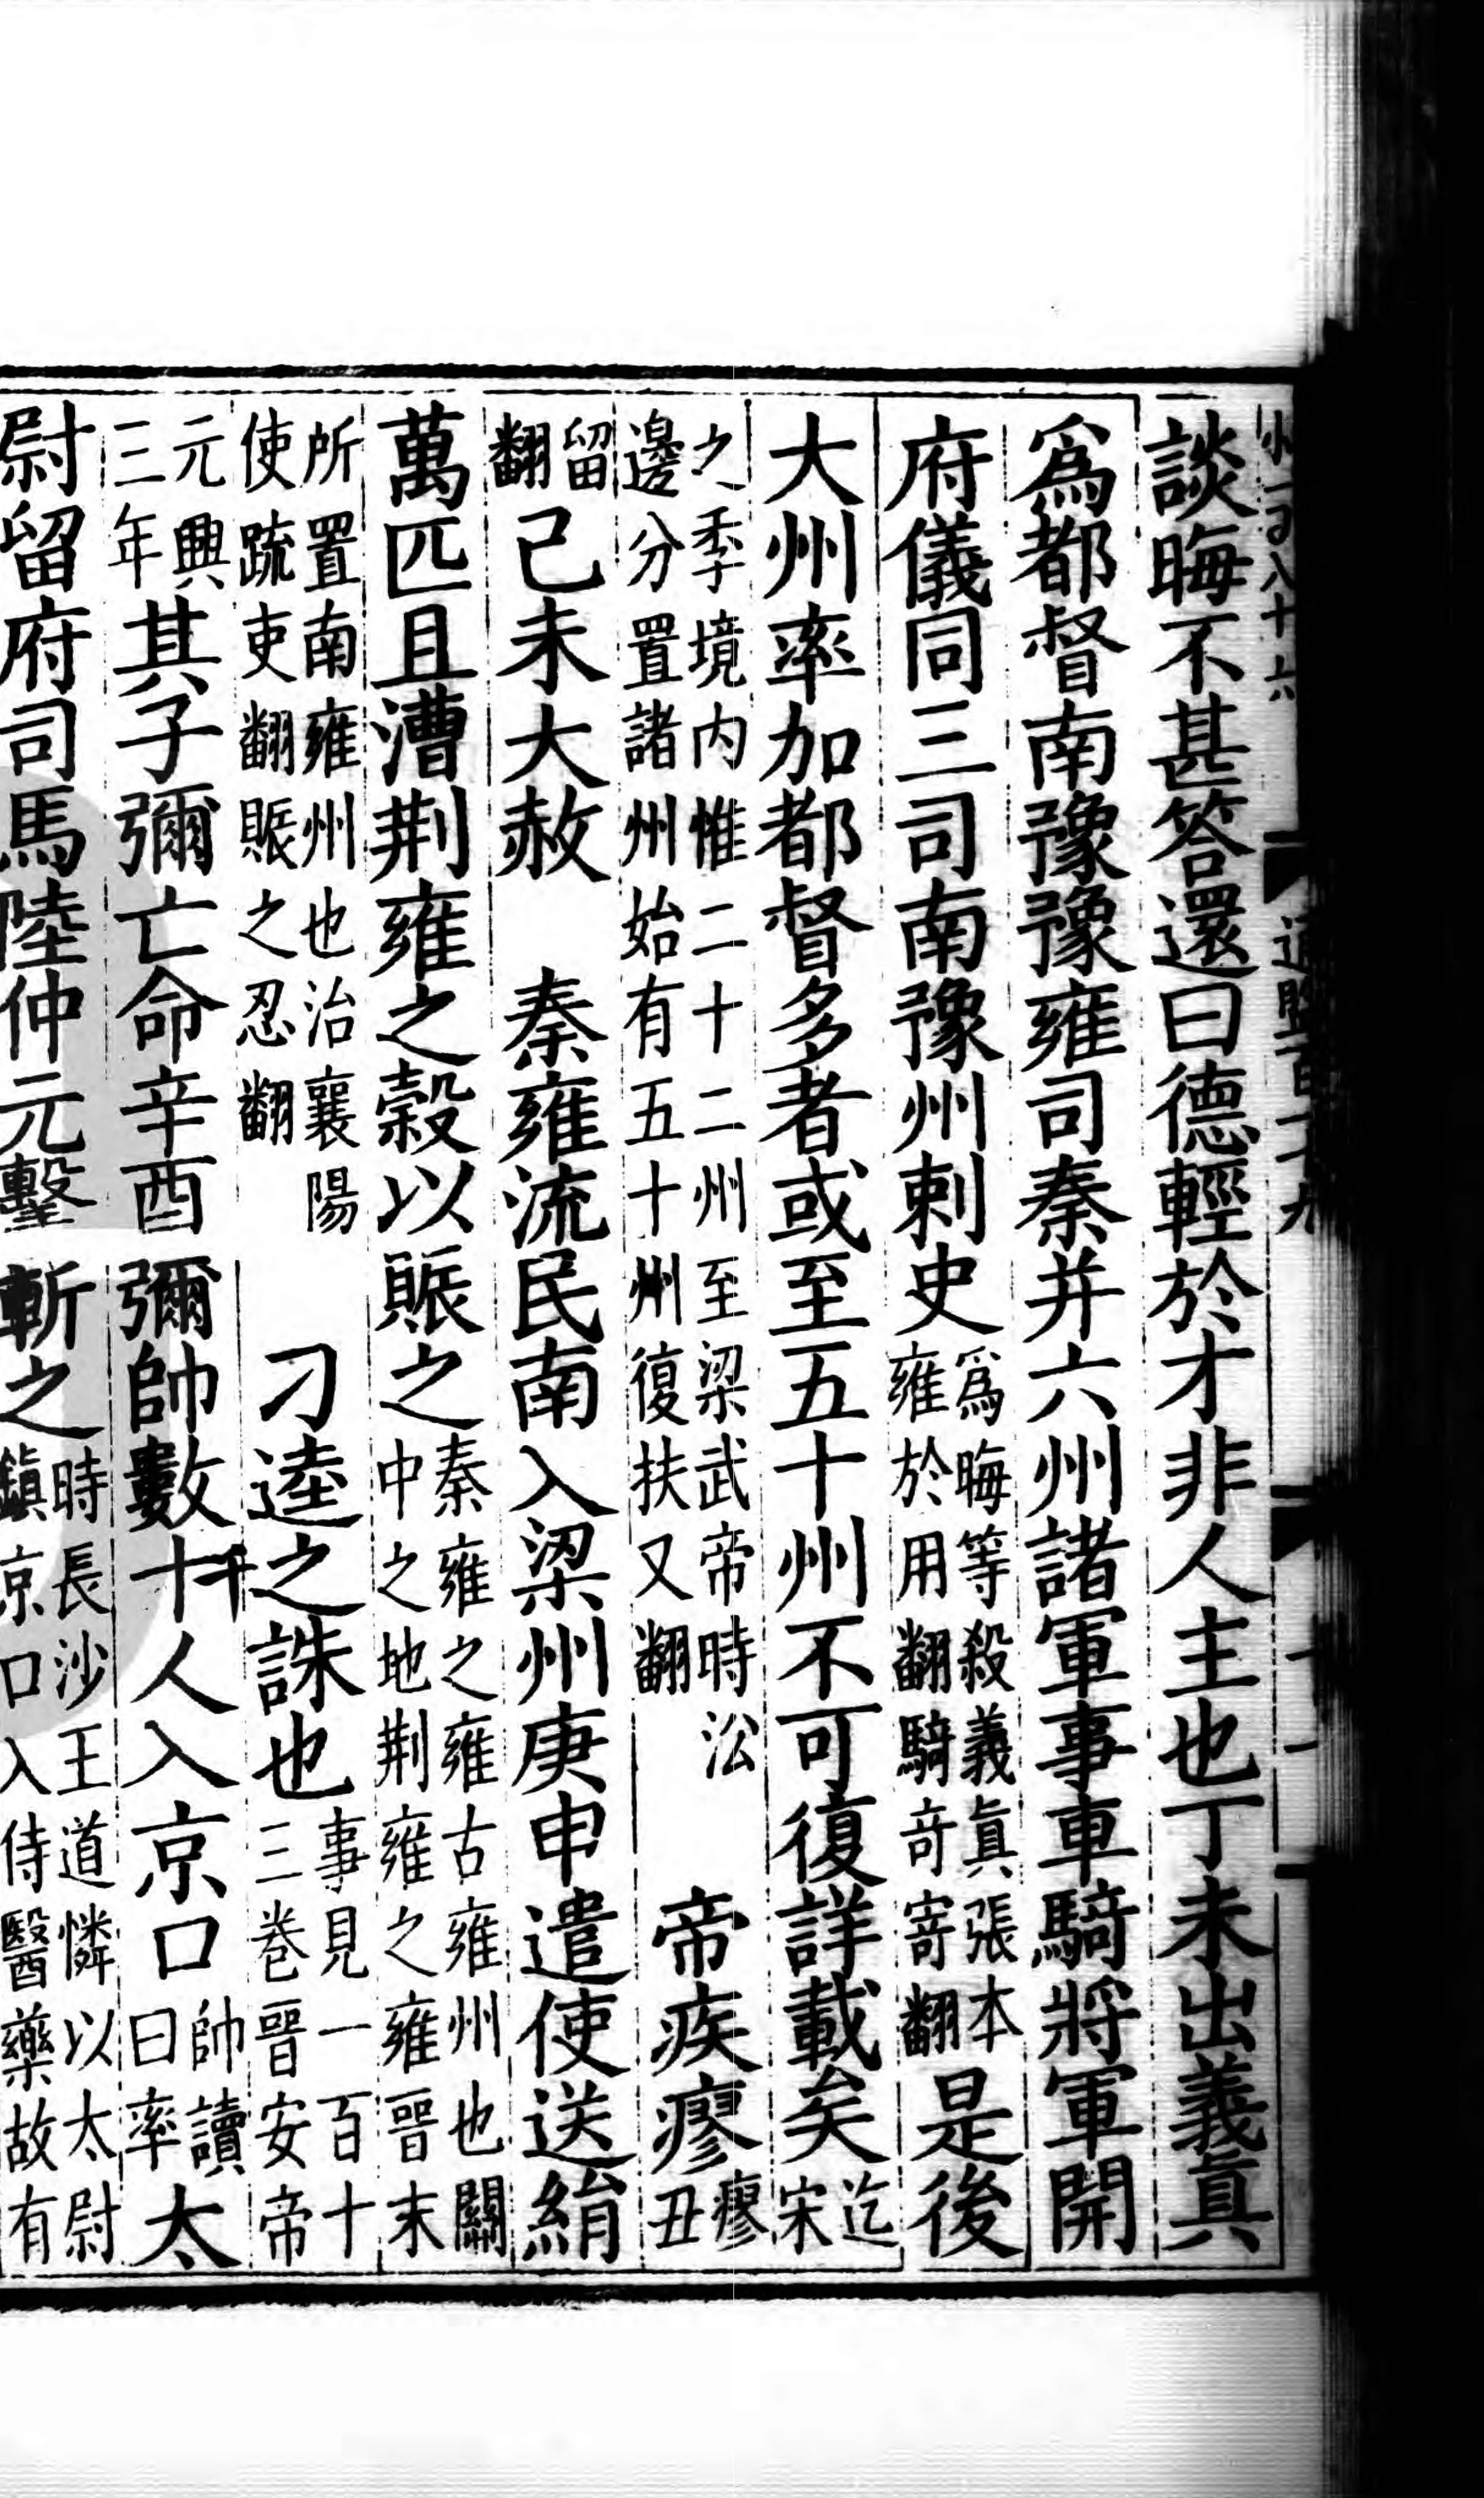 談晦不甚答還曰德輕於才非人主也丁未出義真
爲都督南豫豫雍司秦并六州諸軍事車騎將軍開
府儀同三司南豫州刺史爲晦等殺義真張本雍於用翻騎奇寄翻是後
大州率加都督多者或至五十州不可復詳載矣迄宋
之季境内惟二十二州至梁武帝時㳂邊分置諸州始有五十州復扶又翻帝疾瘳瘳丑
留翻己未大赦　秦雍流民南入梁州庚申遣使送絹
萬匹且漕荆雍之穀以賑之秦雍之雍古雍州也關中之地荆雍之雍晉末
所置南雍州也治襄陽使疏吏翻賑之忍翻　刁逵之誅也事見一百十三卷晉安帝
元興三年其子彌亡命辛酉彌帥數十人入京口帥讀曰率太
尉留府司馬陸仲元擊斬之時長沙王道憐以太尉鎭京口入侍醫藥故有